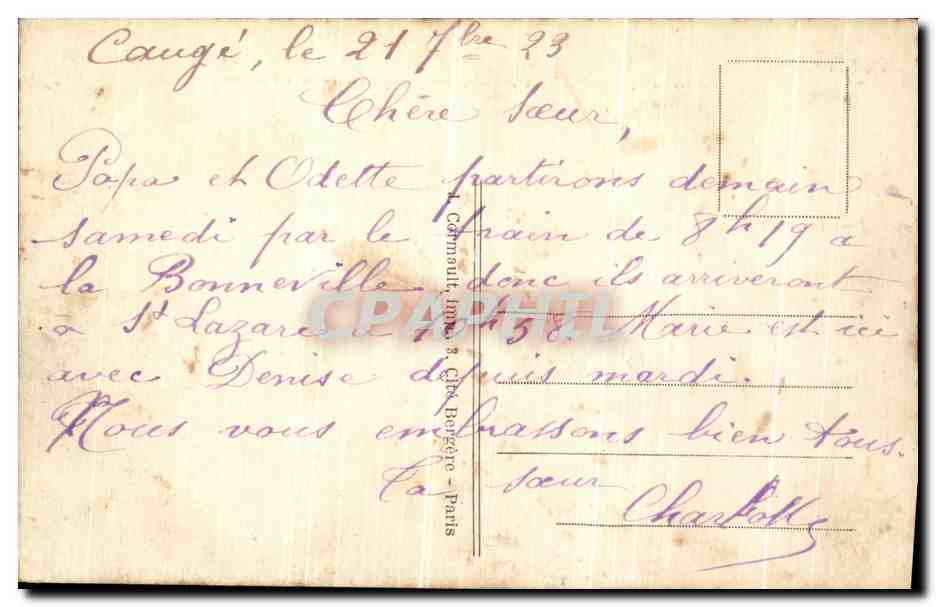 Caugé, le 21 7bre 23
Chère Sœur,
Papa et Odette partirons demain
samedi par le train de 8h 19 à
la Bonneville, donc ils arriveront
a St Lazare à 10h 58. Marie est ici
avec Denise depuis mardi.
Nous vous embrassons bien tous.
Ta sœur
Charlotte
J. Cormault, imp., 3, Cité Bergère - Paris
CPAPHIL